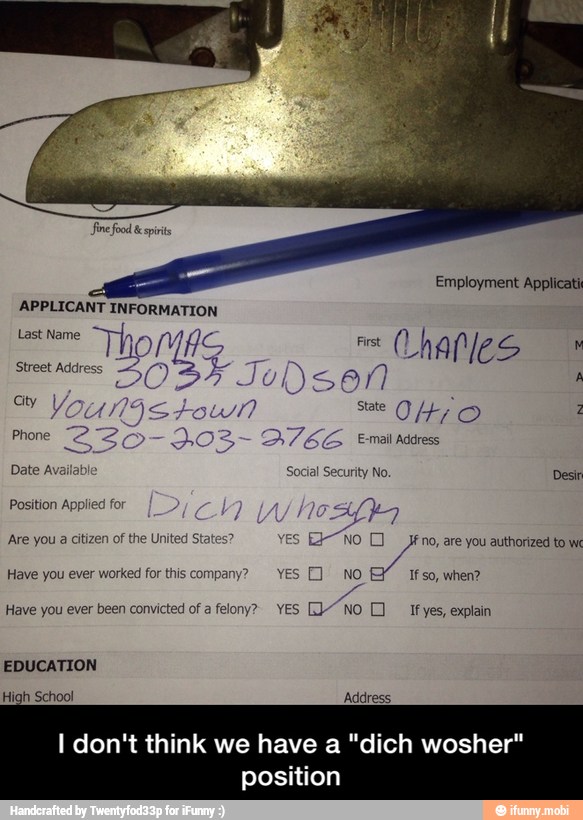 fine food & spirits
Employment Applicati
APPLICANT INFORMATION
Last Name Thomas First Charles M
Street Address 3035 Judson A
City Youngstown State Ohio Z
Phone 330-203-2766 E-mail Address
Date Available Social Security No. Desir
Position Applied for Dich
Are you a citizen of the United States? YES NO If no, are you authorized to wo
Have you ever worked for this company? YES NO If so, when?
Have you ever been convicted of a felony? YES NO If yes, explain
EDUCATION
High School Address
I don't think we have a "dich wosher"
position
Handcrafted by Twentyfod33p for iFunny :) ifunny.mobi